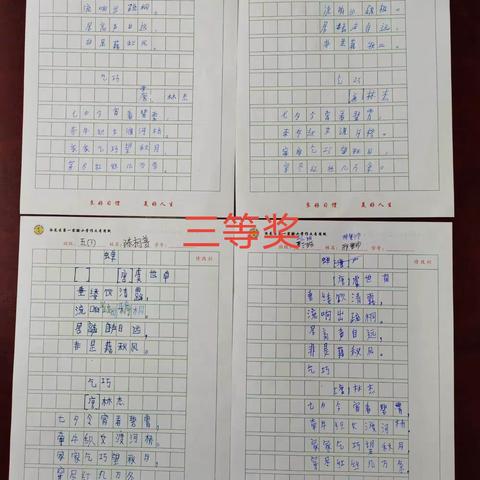 流响出疏桐。
居高声自远，
非是藉秋风。
乞巧
林杰
七夕今宵看碧霄，
牵牛织女渡河桥。
家家乞巧望秋月，
穿尽红丝几万条。
良好习惯 美好人生
流响出疏桐。
居高声自远，
非是藉秋风。
乞巧
[唐]林杰
七夕今宵看碧霄，
牵牛织女渡河桥。
家家乞巧望秋月，
穿尽红丝几万条。
良好习惯 美好人生
三等奖
五(1)
蝉
[唐]虞世南
垂緌饮清露，
流响出疏桐。
非是藉秋风。
乞巧
[唐]林杰
七夕今宵看碧霄，
牵牛织女渡河桥。
家家乞巧望秋月，
穿尽红丝几万条
蝉
[唐]虞世南
垂緌饮清露，
流响出疏桐。
居高声自远，
非是藉秋风。
乞巧
[唐]林杰
七夕今宵看碧霄，
牵牛织女渡河桥。
家家乞巧望秋月，
穿尽红丝几万条